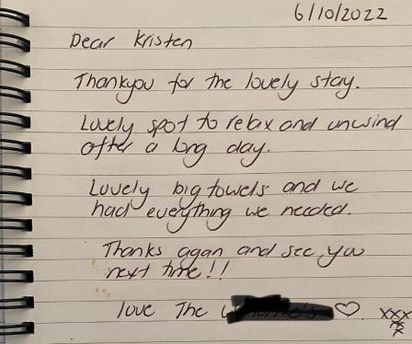 6/10/2022
Dear Kristen
Thankyou for the lovely stay.
Lovely spot to relax and unwind
after a long day.
Lovely big towels and we
had everything we needed.
Thanks again and see you
next time!!
love The ♡ xxx
xx